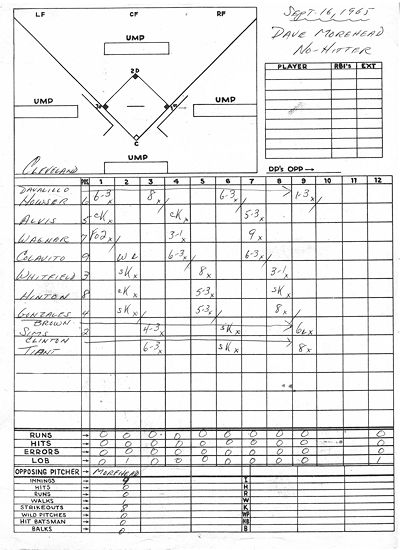 Sept. 16, 1965
DAVE MOREHEAD
NO-HITTER
LF CF RF
UMP
2B
UMP UMP
C
UMP
PLAYER RBI's EXT
DP's OPP →
CLEVELAND POS. 1 2 3 4 5 6 7 8 9 10 11 12
DAVALILLO
HOWSER 6 6-3 8 6-3 1-3
ALVIS 5 cK cK 5-3
WAGNER 7 F02 3-1 9
COLAVITO 9 W 6-3 6-3
WHITFIELD 3 sK 8 3-1
HINTON 8 cK 5-3 sK
GONZALES 4 sK 5-3 8
BROWN
SIMS 2 4-3 sK 6L
CLINTON
TIANT 6-3 sK 8
RUNS → 0 0 0 0 0 0 0 0 0 0
HITS → 0 0 0 0 0 0 0 0 0 0
ERRORS → 0 0 0 0 0 0 0 0 0 0
LOB → 0 1 0 0 0 0 0 0 0 1
OPPOSING PITCHER → MOREHEAD
INNINGS → 9 I
HITS → 0 H
RUNS → 0 R
WALKS → 1 W
STRIKEOUTS → 8 K
WILD PITCHES → 0 WP
HIT BATSMAN → 0 HB
BALKS → 0 B